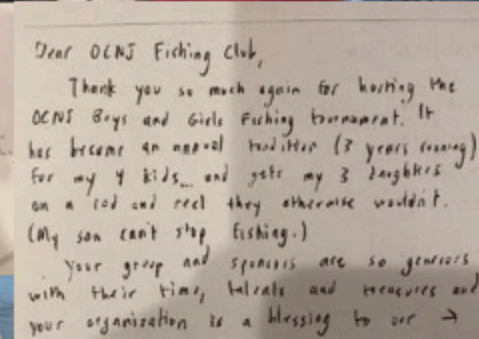 Dear OCNJ Fishing Club,
Thank you so much again for hosting the
OCNJ Boys and Girls Fishing tournament. It
has become an annual tradition (3 years running)
for my 4 kids... and gets my 3 daughters
on a rod and reel they otherwise wouldn't.
(My son can't stop fishing.)
Your group and sponsors are so generous
with their time, talents and treasures and
your organization is a blessing to our →